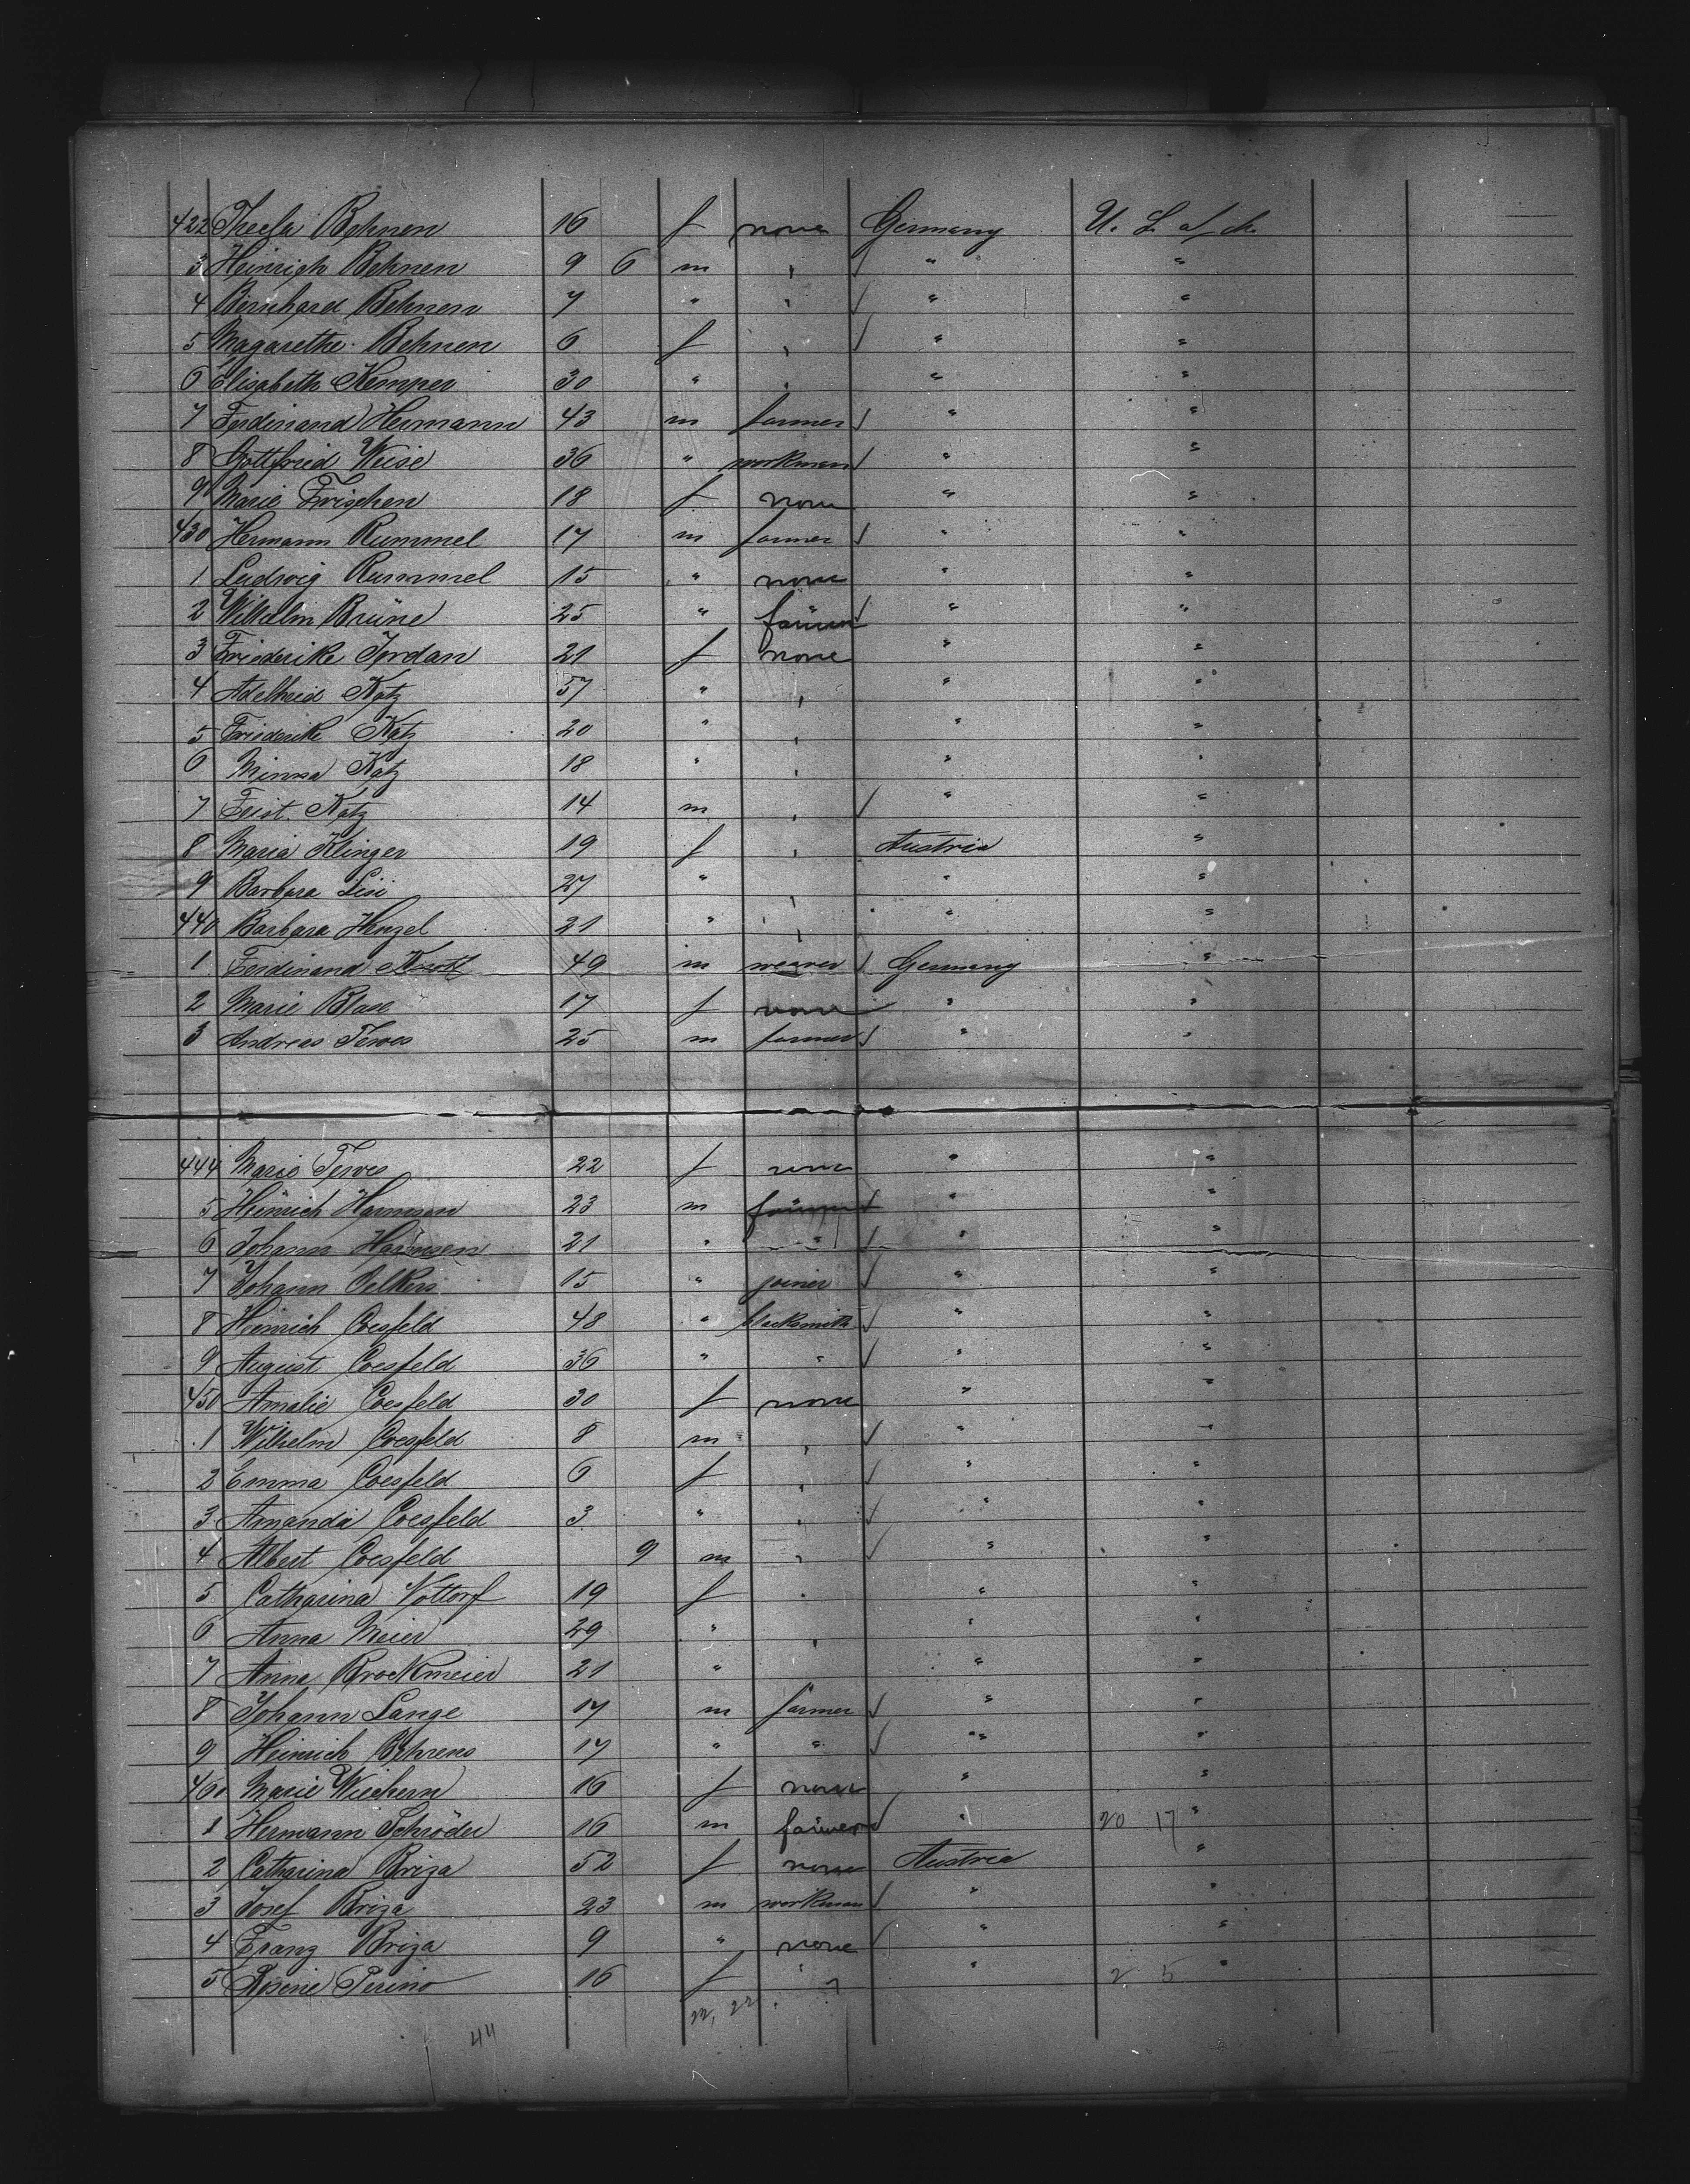 422 Thecla Behnen 16 f none Germany U. S. of A.
3 Heinrich Behnen 9 6 m , √ " "
4 Bernhard Behnen 7 " , √ " "
5 Magarethe Behnen 6 f , √ " "
6 Elisabeth Kemper 30 " , " "
7 Ferdinand Hermann 43 m farmer √ " "
8 Gottfried Weise 36 " workman √ " "
9 Marie Frischen 18 f none " "
430 Hermann Rummel 17 m farmer √ " "
1 Ludwig Rummel 15 " none " "
2 Wilhelm Brüne 25 " farmer √ " "
3 Friederike Jordan 21 f none " "
4 Adelheid Katz 57 " , " "
5 Friederike Katz 20 " , " "
6 Minna Katz 18 " , " "
7 Feist Katz 14 m , √ " "
8 Maria Klinger 19 f , Austria "
9 Barbara Lisi 27 " , " "
440 Barbara Henzel 21 " , " "
1 Ferdinand 49 m weaver √ Germany "
2 Marie Blase 17 f none " "
3 Andreas Tewes 25 m farmer √ " "
444 Marie Tewes 22 f none " "
5 Heinrich Harmsen 23 m farmer √ " "
6 Johann Harmsen 21 " " √ " "
7 Johann Oelkers 15 " joiner √ " "
8 Heinrich Coesfeld 48 " blacksmith √ " "
9 August Coesfeld 36 " " √ " "
450 Amalie Coesfeld 30 f none " "
1 Wilhelm Coesfeld 8 m , √ " "
2 Emma Coesfeld 6 f , √ " "
3 Amanda Coesfeld 3 " , √ " "
4 Albert Coesfeld 9 m , √ " "
5 Catharina Vottorf 19 f , " "
6 Anna Meier 29 " , " "
7 Anna Brockmeier 21 " " "
8 Johann Lange 17 m farmer √ " "
9 Heinrich Behrens 17 " " √ " "
460 Marie Wiechern 16 f none " "
1 Hermann Schröder 16 m farmer √ " 20 17 "
2 Catharina Briza 52 f none Austria "
3 Josef Briza 23 m workman √ " "
4 Franz Briza 9 " none √ " "
5 Rosine Perino 16 f " " 2 5 "
22, 22
44